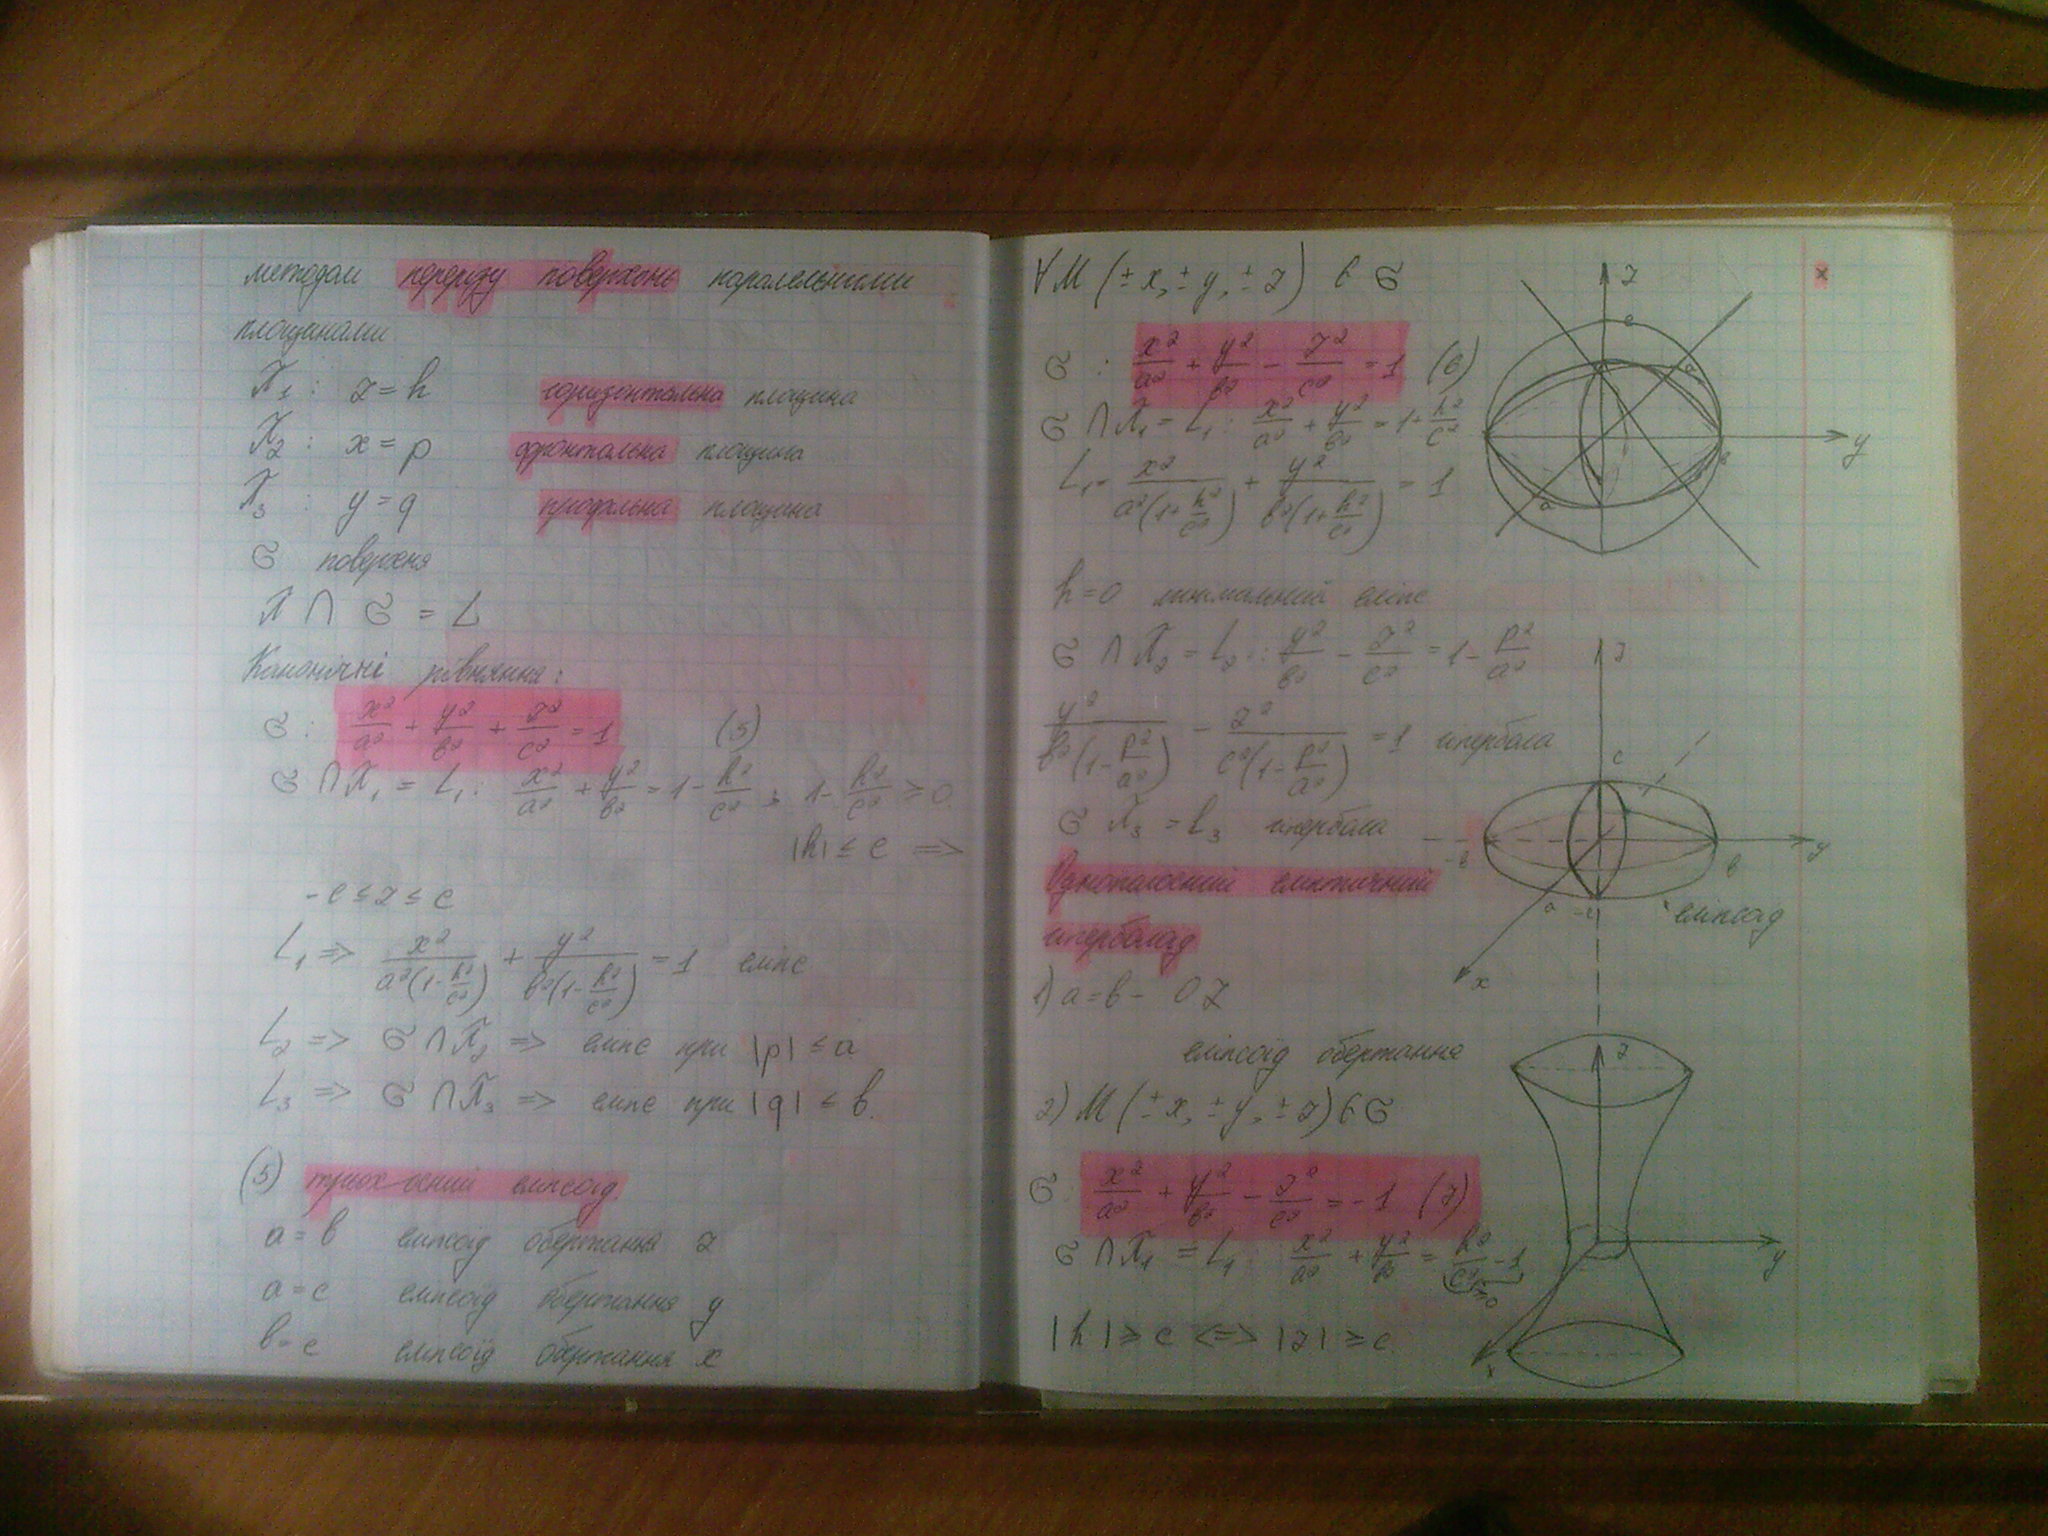 методом перерізу поверхонь паралельними
площинами
π₁ : z = h горизонтальна площина
π₂ : x = p фронтальна площина
π₃ : y = q профальна площина
σ поверхня
π ∩ σ = L
Канонічні рівняння:
σ : x²/a² + y²/b² + z²/c² = 1 (5)
σ ∩ π₁ = L₁ : x²/a² + y²/b² = 1 - h²/c² ; 1 - h²/c² ≥ 0
|h| ≤ c =>
-c ≤ z ≤ c
L₁ => x²/(a²(1 - h²/c²)) + y²/(b²(1 - h²/c²)) = 1 еліпс
L₂ => σ ∩ π₂ => еліпс при |p| ≤ a
L₃ => σ ∩ π₃ => еліпс при |q| ≤ b.
(5) трьох осний еліпсоїд.
a = b еліпсоїд обертання z
a = c еліпсоїд обертання y
b = c еліпсоїд обертання x
∀ M (± x, ± y, ± z) є σ
σ : x²/a² + y²/b² - z²/c² = 1 (6)
σ ∩ π₁ = L₁ : x²/a² + y²/b² = 1 + h²/c²
L₁ = x²/(a²(1 + h²/c²)) + y²/(b²(1 + h²/c²)) = 1
h = 0 мінімальний еліпс
σ ∩ π₂ = L₂ : y²/b² - z²/c² = 1 - p²/a²
y²/(b²(1 - p²/a²)) - z²/(c²(1 - p²/a²)) = 1 гіпербола
σ π₃ = L₃ гіпербола
Однополосний еліптичний
гіперболоїд
1) a = b - OZ
еліпсоїд обертання
2) M (± x, ± y, ± z) є σ
σ : x²/a² + y²/b² - z²/c² = -1 (7)
σ ∩ π₁ = L₁ : x²/a² + y²/b² = h²/c² - 1
|h| ≥ c <=> |z| ≥ c.
z
c
a
y
b
a
z
c
-b
b
y
a
-c
еліпсоїд
x
z
y
x